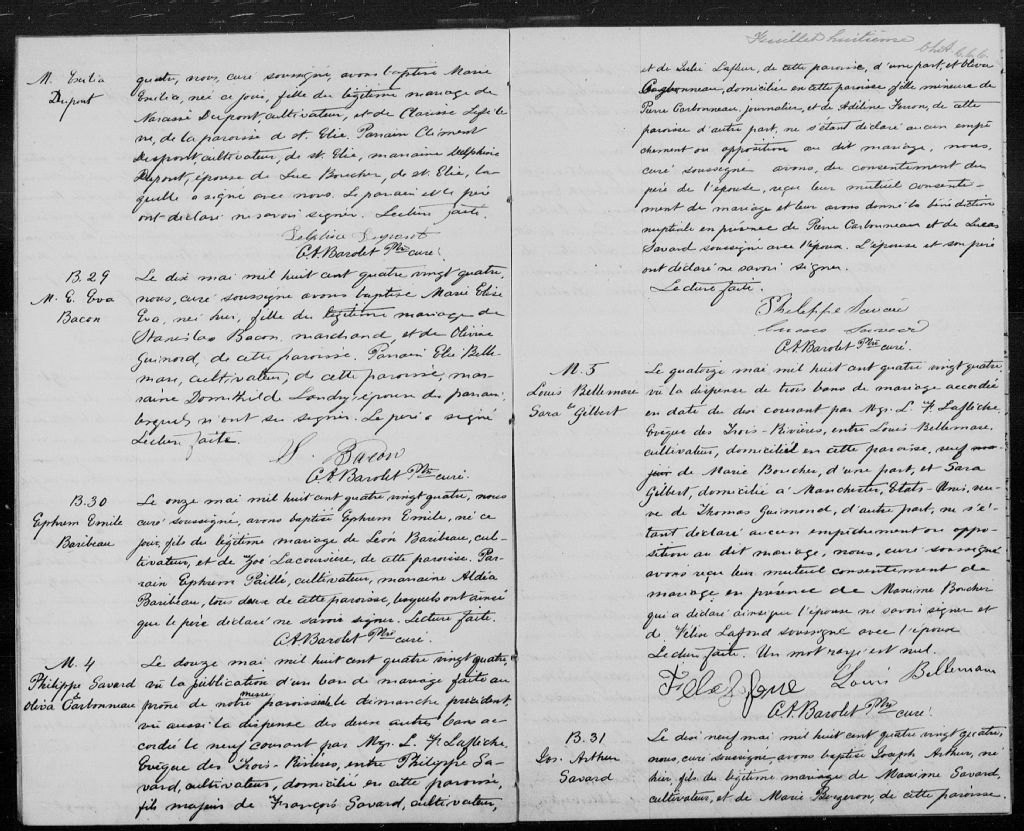 M. Emilia
Dupont
quatre, nous, curé soussigné, avons baptisé Marie
Emilia, née ce jour, fille du légitime mariage de
Narcisse Dupont, cultivateur, et de Clarisse
de la paroisse de St. Elie. Parrain Clément
Dupont cultivateur, de St. Elie, marraine Delphine
Dupont, épouse de Luc Boucher, de St. Elie, la
quelle a signé avec nous. Le parrain et le père
ont déclaré ne savoir signer. Lecture faite.
Delphine Dupont
C.A. Barolet Ptre curé.
B. 29
M. E. Eva
Bacon
Le dix mai mil huit cent quatre vingt quatre,
nous, curé soussigné avons baptisé Marie Elise
Eva, née hier, fille du légitime mariage de
Stanislas Bacon, marchand, et de Olivine
Guimond, de cette paroisse. Parrain Elie Belle-
mare, cultivateur, de cette paroisse, mar-
raine Domithild Landry, épouse du parrain
lesquels n'ont su signer. Le père a signé
Lecture faite.
S. Bacon
C.A. Barolet Ptre curé.
B. 30
Ephrem Emile
Baribeau
Le onze mai mil huit cent quatre vingt quatre, nous
curé soussigné, avons baptisé Ephrem Emile, né ce
jour, fils du légitime mariage de Léon Baribeau, cul-
tivateur, et de Zoé Lacoursière, de cette paroisse. Par-
rain Ephrem Paillé, cultivateur, marraine Aldéa
Baribeau, tous deux de cette paroisse, lesquels ont ainsi
que le père déclaré ne savoir signer. Lecture faite.
C.A. Barolet Ptre curé.
M. 4
Philippe Savard
Oliva Carbonneau
Le douze mai mil huit cent quatre vingt quatre
vu la publication d'un ban de mariage faite au
prône de notre messe paroissiale le dimanche précédent,
vu aussi la dispense des deux autres bans ac-
cordée le neuf courant par Mgr. L. F. Laflèche
Evêque des Trois-Rivières, entre Philippe Sa-
vard, cultivateur, domicilié en cette paroisse,
fils majeur de François Savard, cultivateur,
Feuillet huitième
et de Julie Lafleur, de cette paroisse, d'une part, et Oliva
Carbonneau, domiciliée en cette paroisse fille mineure de
Pierre Carbonneau, journalier, et de Adéline Ferron, de cette
paroisse d'autre part, ne s'étant déclaré aucun empê-
chement ou opposition au dit mariage, nous,
curé soussigné avons, du consentement du
père de l'épouse, reçu leur mutuel consente-
ment de mariage et leur avons donné la bénédiction
nuptiale en présence de Pierre Carbonneau et de Lucas
Savard soussigné avec l'époux. L'épouse et son père
ont déclaré ne savoir signer.
Lecture faite.
Philippe Savard
Lucas Savard
C.A. Barolet Ptre curé.
M. 5
Louis Bellemare
& Sara Gilbert
Le quatorze mai mil huit cent quatre vingt quatre,
vu la dispense de trois bans de mariage accordée
en date de dix courant par Mgr. L. F. Laflèche,
Evêque des Trois-Rivières, entre Louis Bellemare,
cultivateur, domicilié en cette paroisse, veuf ma-
jeur de Marie Boucher, d'une part, et Sara
Gilbert, domiciliée à Manchester, Etats-Unis, veu-
ve de Thomas Guimond, d'autre part, ne s'é-
tant déclaré aucun empêchement ou oppo-
sition au dit mariage, nous, curé soussigné
avons reçu leur mutuel consentement de
mariage en présence de Maxime Boucher
qui a déclaré ainsi que l'épouse ne savoir signer et
d. Félix Lafond soussigné avec l'époux
Lecture faite. Un mot rayé est nul.
Louis Bellemare
C.A. Barolet Ptre curé.
B. 31
Jos. Arthur
Savard
Le dix neuf mai mil huit cent quatre vingt quatre,
nous, curé soussigné, avons baptisé Joseph Arthur, né
hier, fils du légitime mariage de Maxime Savard,
cultivateur, et de Marie Bergeron, de cette paroisse.